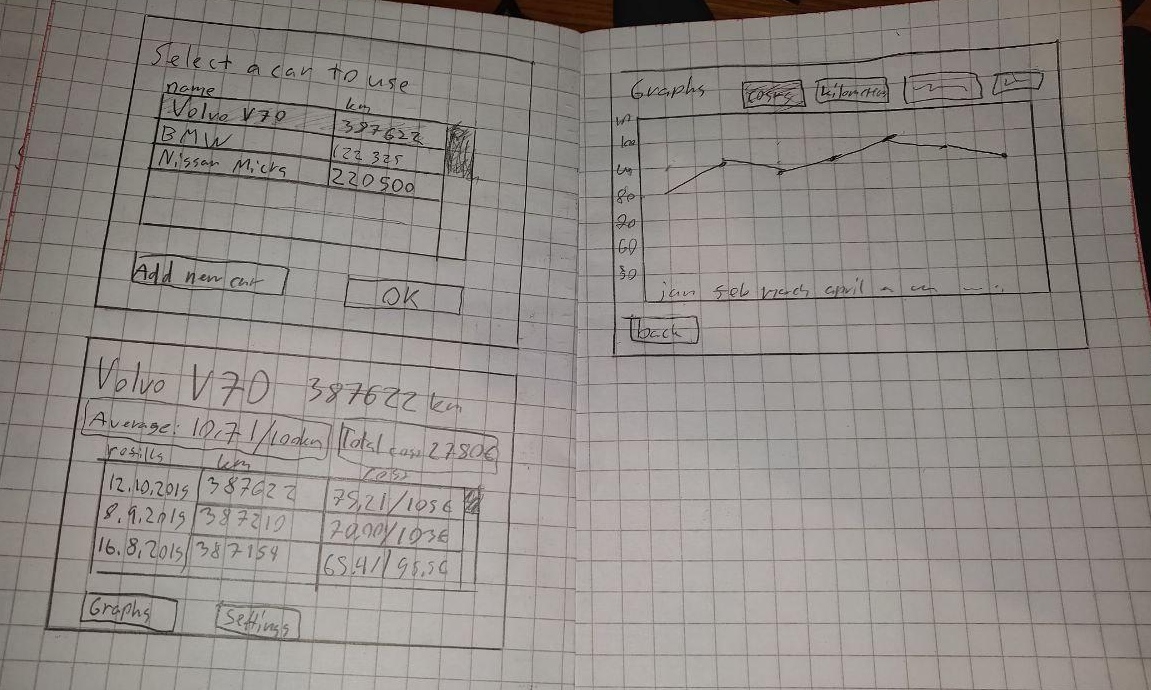 Select a car to use
name km
Volvo V70 387622
BMW 122 325
Nissan Micra 220500
Add new car OK
Volvo V70 387622 km
Average: 10,7l/100km Total cost 2780€
refills km cost
12.10.2019 387622 75,2l/105€
8.9.2019 387210 /103€
16.8.2019 387154 65,4l/95,5€
Graphs Settings
Graphs costs kilometres
100
80
70
60
50
jan feb march april
back